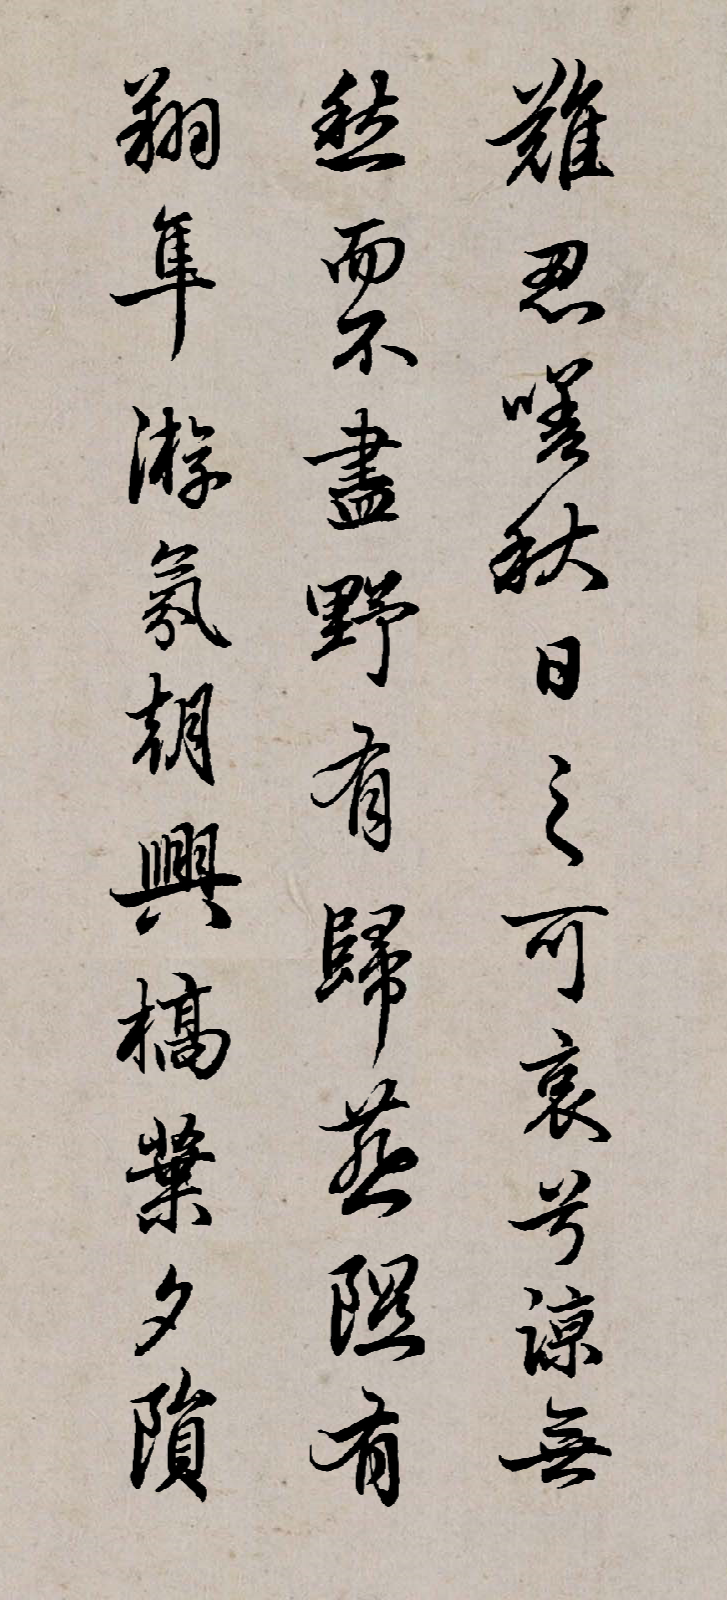 難忍嗟秋日之可哀兮諒無
愁而不盡野有歸燕隰有
翔隼游氛朝興槁葉夕隕